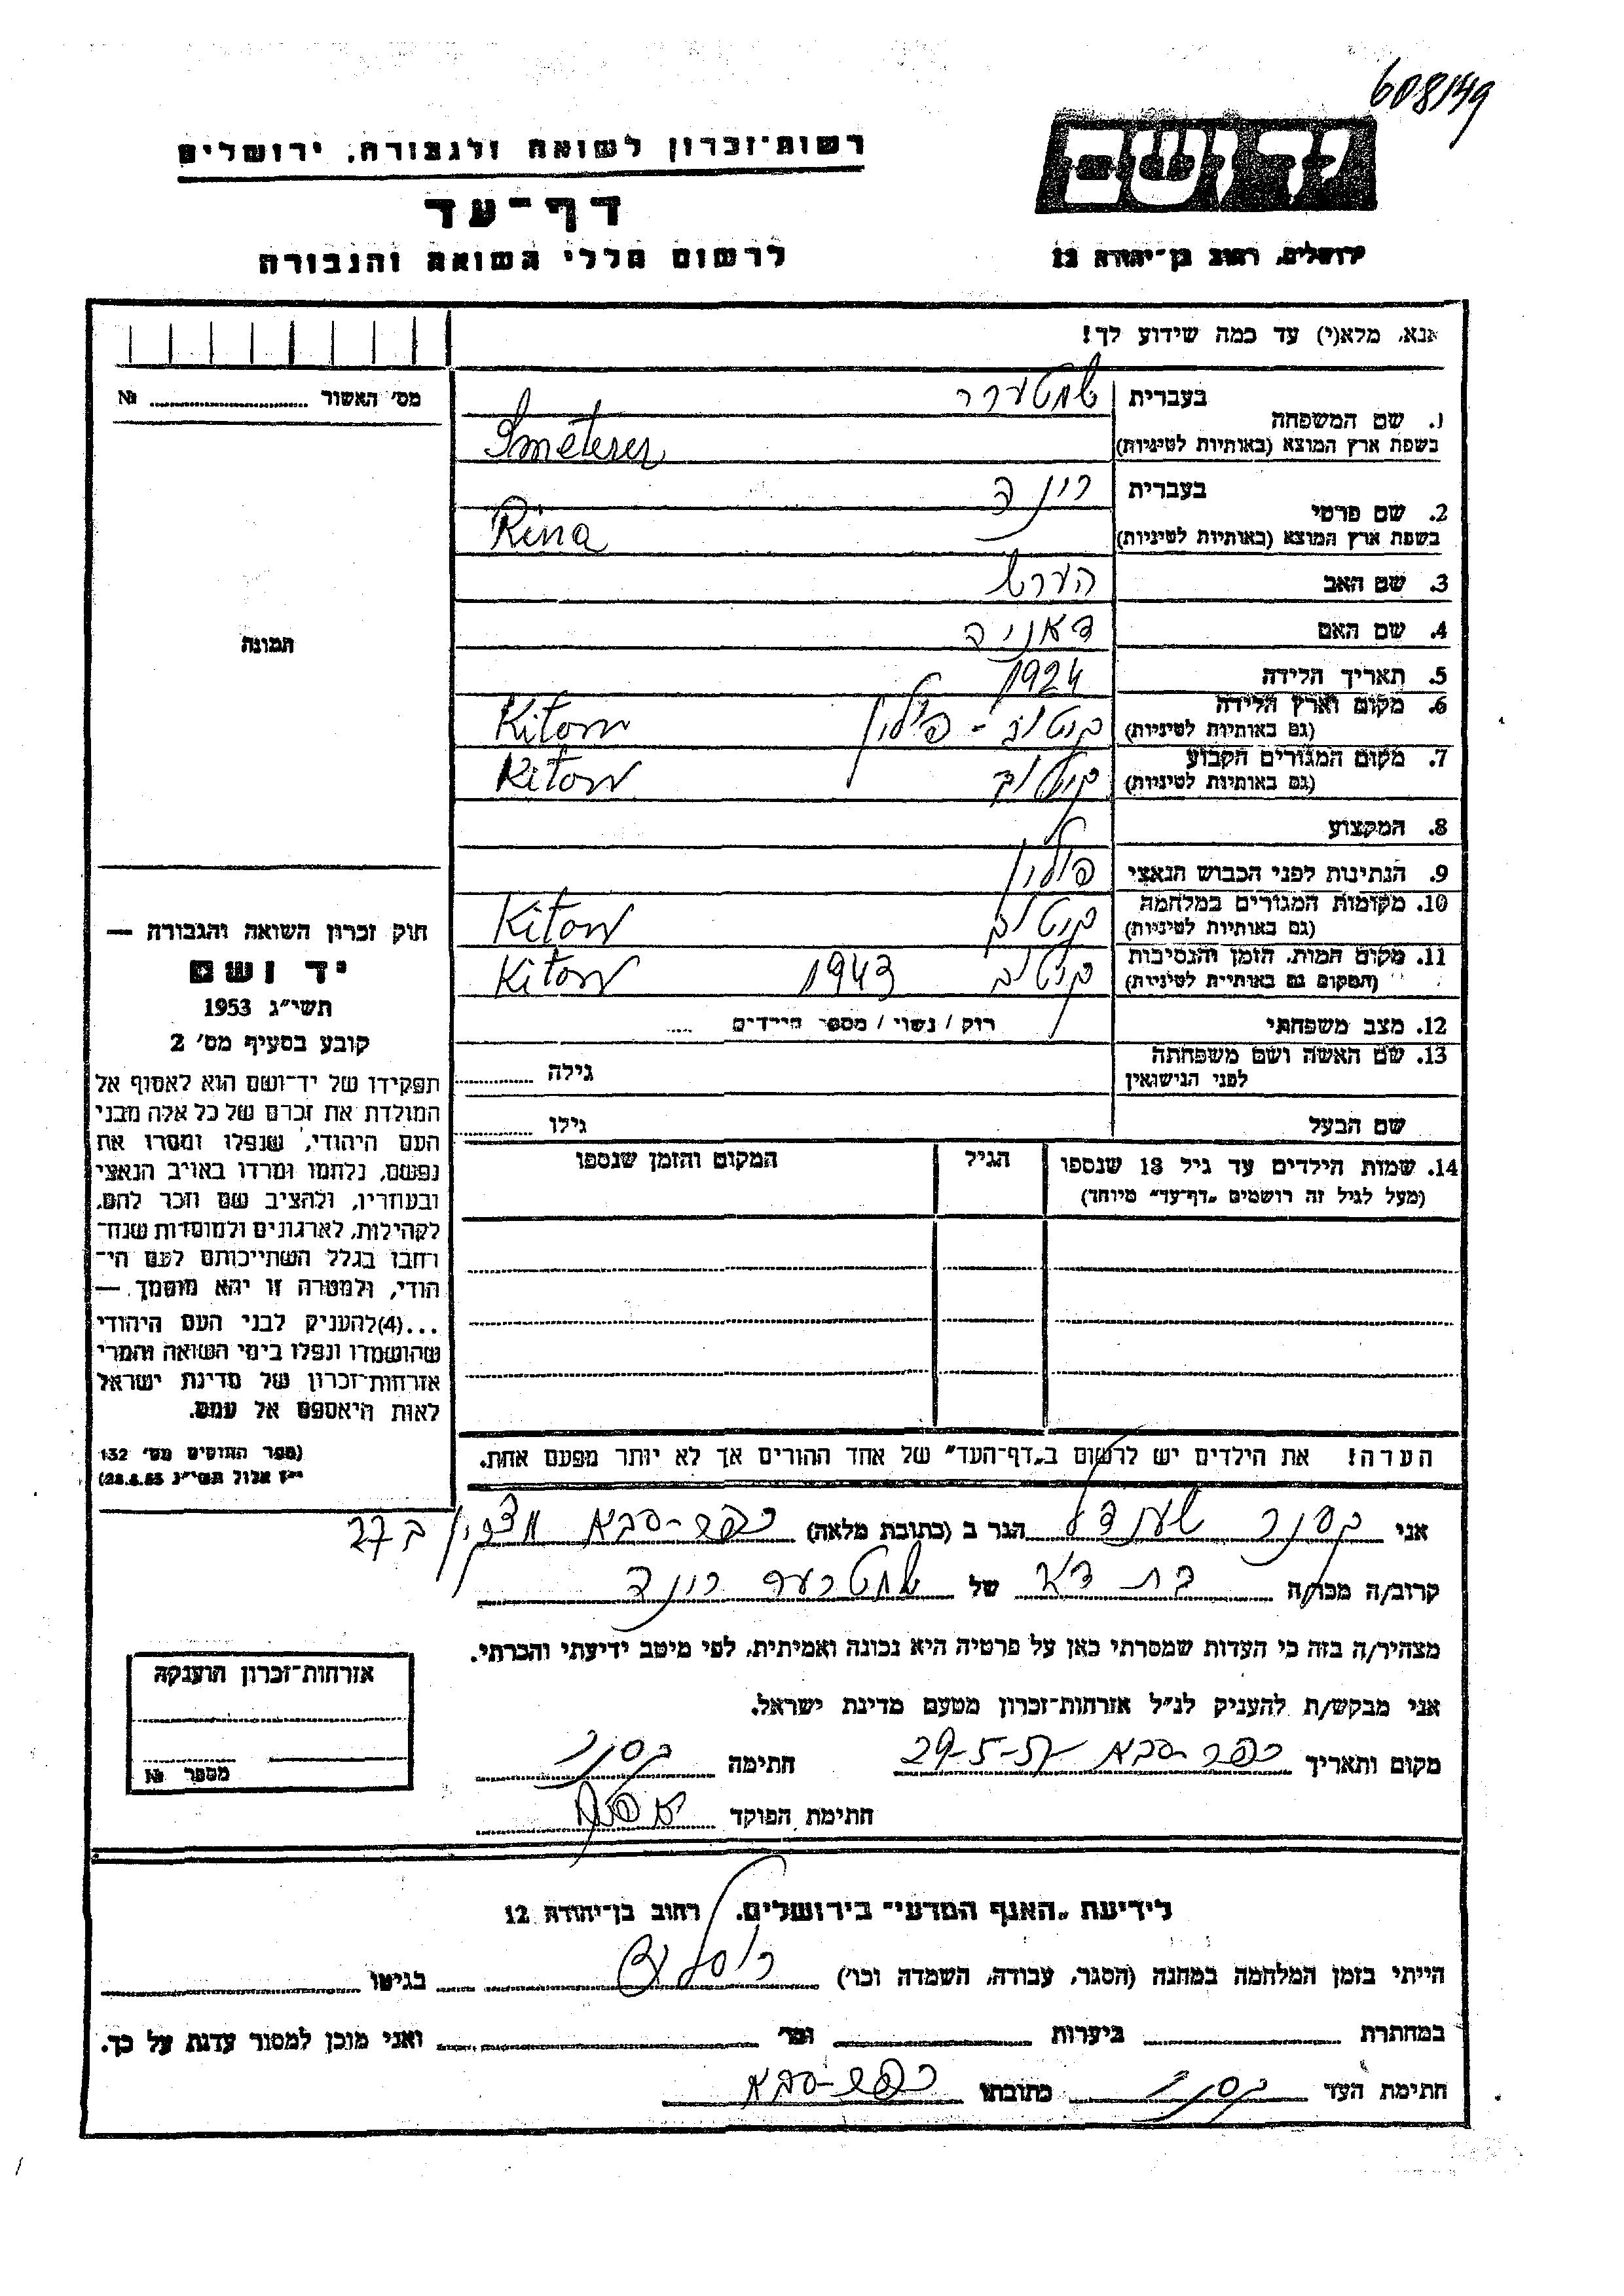 608/149
יד ושם
רשות־זכרון לשואה ולגבורה, ירושלים
דף־עד
לרשום חללי השואה והגבורה
ירושלים, רחוב בן־יהודה 12
אנא, מלא(י) עד כמה שידוע לך!
מס' האשור № 
תמונה
1. שם המשפחה
בעברית שמטערר
בשפת ארץ המוצא (באותיות לטיניות) Smeterer
2. שם פרטי
בעברית רינה
בשפת ארץ המוצא (באותיות לטיניות) Rina
3. שם האב הערש
4. שם האם
5. תאריך הלידה 1924
6. מקום וארץ הלידה קיטוב - פולין Kitow
(גם באותיות לטיניות)
7. מקום המגורים הקבוע קיטוב Kitow
(גם באותיות לטיניות)
8. המקצוע
9. הנתינות לפני הכבוש הנאצי פולין
10. מקומות המגורים במלחמה קיטוב Kitow
(גם באותיות לטיניות)
11. מקום המות, הזמן והנסיבות קיטוב 1943 Kitow
(המקום גם באותיות לטיניות)
12. מצב משפחתי רוק / נשוי / מספר הילדים
13. שם האשה ושם משפחתה גילה
לפני הנישואין
שם הבעל גילו
14. שמות הילדים עד גיל 18 שנספו הגיל המקום והזמן שנספו
(מעל לגיל זה רושמים „דף־עד" מיוחד)
חוק זכרון השואה והגבורה —
יד ושם
תשי"ג 1953
קובע בסעיף מס' 2
תפקידו של יד־ושם הוא לאסוף אל
המולדת את זכרם של כל אלה מבני
העם היהודי, שנפלו ומסרו את
נפשם, נלחמו ומרדו באויב הנאצי
ובעוזריו, ולהציב שם וזכר להם,
לקהילות, לארגונים ולמוסדות שנח־
רבו בגלל השתייכותם לעם הי־
הודי, ולמטרה זו יהא מוסמך —
...(4)להעניק לבני העם היהודי
שהושמדו ונפלו בימי השואה והמרי
אזרחות־זכרון של מדינת ישראל
לאות היאספם אל עמם.
(ספר החוקים מס' 132
י"ז אלול תשי"ג 28.8.53)
הערה! את הילדים יש לרשום ב„דף־העד" של אחד ההורים אך לא יותר מפעם אחת.
אני קסנר שענדל הגר ב (כתובת מלאה) כפר-סבא ב 27
קרוב/ה מכר/ה בת דוד של רינה
מצהיר/ה בזה כי העדות שמסרתי כאן על פרטיה היא נכונה ואמיתית, לפי מיטב ידיעתי והכרתי.
אני מבקש/ת להעניק לנ"ל אזרחות־זכרון מטעם מדינת ישראל.
מקום ותאריך כפר-סבא 29-5-57 חתימה קסנר
חתימת הפוקד
אזרחות־זכרון הוענקה
מספר №
לידיעת „האגף המדעי" בירושלים, רחוב בן־יהודה 12
הייתי בזמן המלחמה במחנה (הסגר, עבודה, השמדה וכו') בגיטו
במחתרת ביערות וכו' ואני מוכן למסור עדות על כך.
חתימת העד קסנר כתובתו כפר-סבא